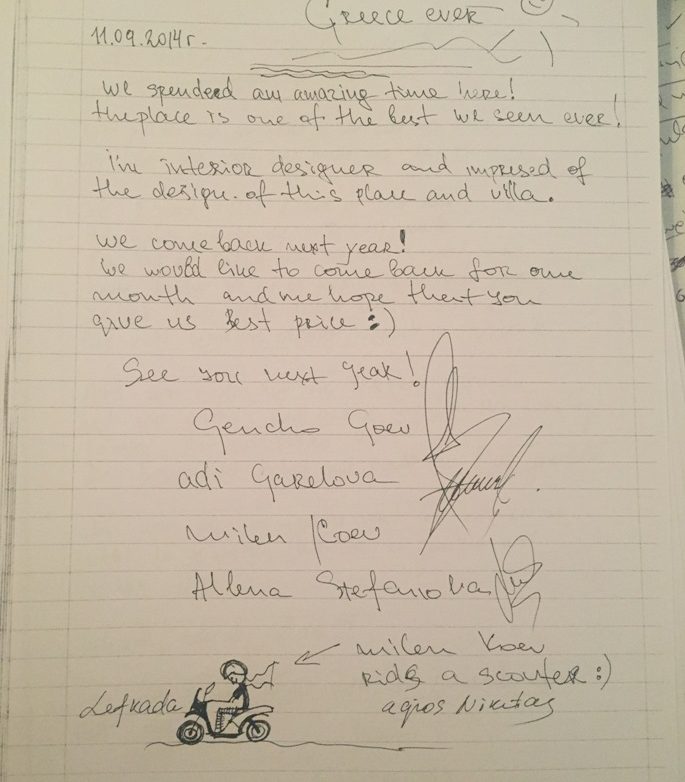 Greece ever
11.09.2014г.
we spended an amazing time here!
the place is one of the best we seen ever!
i'm interior designer and impresed of
the design. of this place and villa.
we come back next year!
we would like to come back for one
month and we hope that you
give us best price :)
See you next year!
Gencho Goev
adi Garelova
milen Koev
Allena Stefanova
milen Koev
ride a scouter :)
Lefkada
agios Nikitas